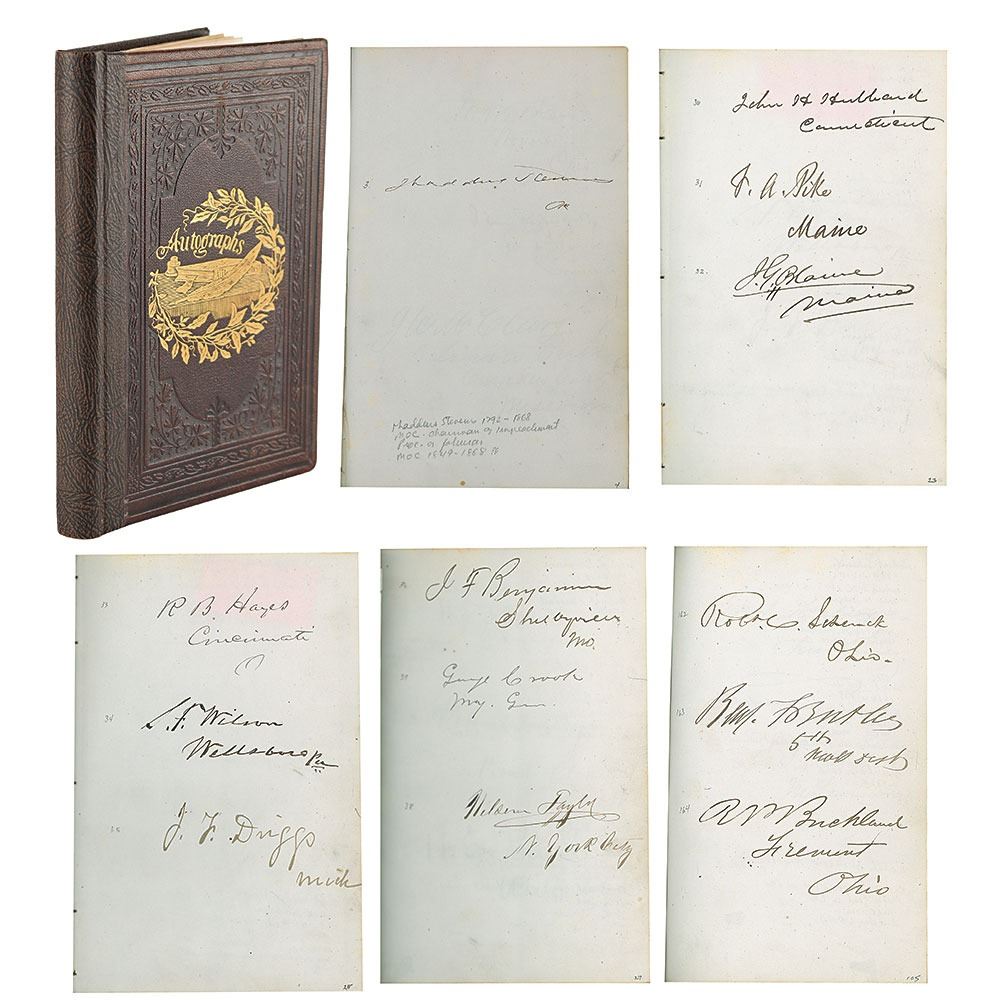 Autographs
3. Thaddeus Stevens
Pa
Thaddeus Stevens 1792-1868
MOC - Chairman of Impeachment
Proc. of Johnson
MOC 1849-1868 Pa
4
30 John H Hubbard
Connecticut
31 F. A. Pike
Maine
32. J. G. Blaine
Maine
23
33 R B. Hayes
Cincinnati
O
34 S. F. Wilson
Wellsboro Pa
35 J. F. Driggs
Mich
25
J F Benjamin
Shelbyville
Mo.
George Crook
Maj. Gen.
38 Nelson Taylor
N. York City
27
162 Robt. C. Schenck
Ohio.
163 Benj. F Butler
5th
Mass Dist
164 R P Buckland
Fremont
Ohio
105